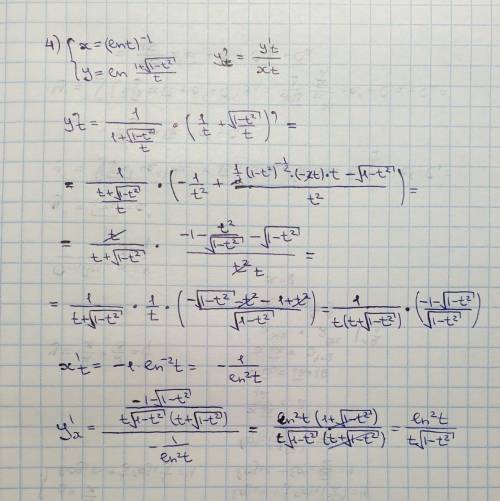 4) { x = (ln t)^{-1}
{ y = ln \frac{1+\sqrt{1-t^2}}{t}
y'_x = \frac{y't}{x't}
y't = \frac{1}{\frac{1+\sqrt{1-t^2}}{t}} \cdot (\frac{1}{t} + \frac{\sqrt{1-t^2}}{t})' =
= \frac{1}{\frac{t+\sqrt{1-t^2}}{t}} \cdot (-\frac{1}{t^2} + \frac{\frac{1}{2}(1-t^2)^{-\frac{1}{2}} \cdot (-2t) \cdot t - \sqrt{1-t^2}}{t^2}) =
= \frac{t}{t+\sqrt{1-t^2}} \cdot \frac{-1-\frac{t^2}{\sqrt{1-t^2}} - \sqrt{1-t^2}}{t^2 t} =
= \frac{1}{t+\sqrt{1-t^2}} \cdot \frac{1}{t} \cdot (\frac{-\sqrt{1-t^2} - t^2 - 1 + t^2}{\sqrt{1-t^2}}) = \frac{1}{t(t+\sqrt{1-t^2})} \cdot (\frac{-1-\sqrt{1-t^2}}{\sqrt{1-t^2}})
x't = -1 \cdot ln^{-2}t = -\frac{1}{ln^2 t}
y'_x = \frac{\frac{-1-\sqrt{1-t^2}}{t\sqrt{1-t^2}(t+\sqrt{1-t^2})}}{-\frac{1}{ln^2 t}} = \frac{ln^2 t (1+\sqrt{1-t^2})}{t\sqrt{1-t^2}(t+\sqrt{1-t^2})} = \frac{ln^2 t}{t\sqrt{1-t^2}}